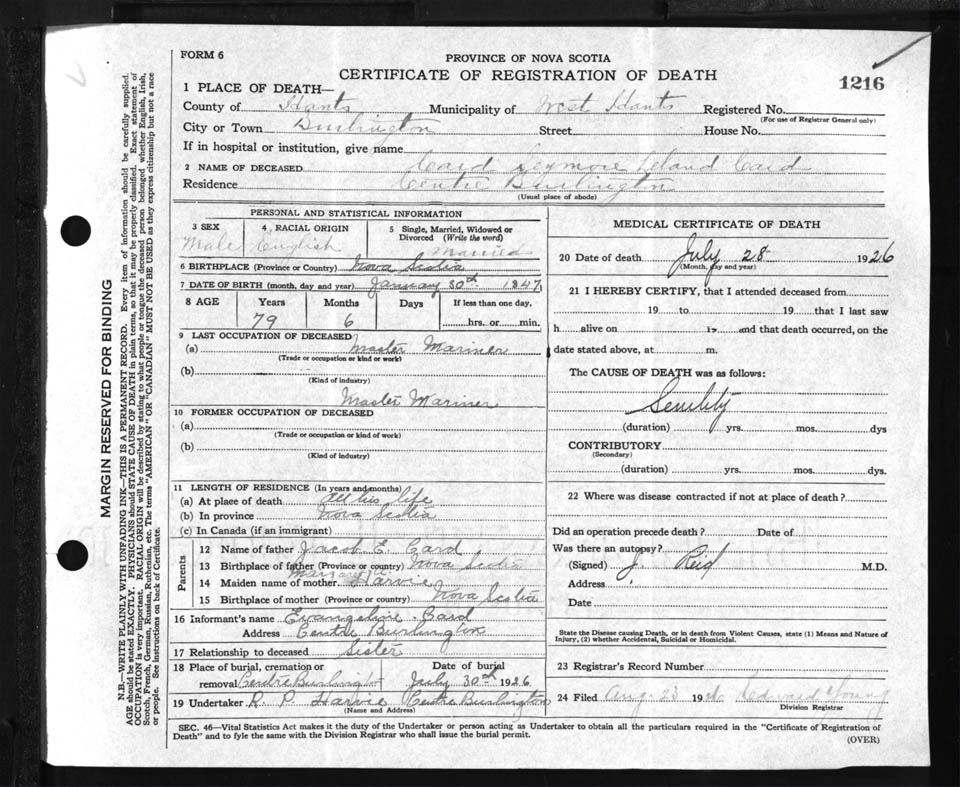 FORM 6
PROVINCE OF NOVA SCOTIA
CERTIFICATE OF REGISTRATION OF DEATH
1216
1 PLACE OF DEATH—
County of Hants Municipality of West Hants Registered No.
(For use of Registrar General only)
City or Town Burlington Street House No.
If in hospital or institution, give name
2 NAME OF DECEASED Card Seymore Leland Card
Residence Centre Burlington
(Usual place of abode)
PERSONAL AND STATISTICAL INFORMATION
3 SEX 4 RACIAL ORIGIN 5 Single, Married, Widowed or
Divorced (Write the word)
Male English Married
6 BIRTHPLACE (Province or Country) Nova Scotia
7 DATE OF BIRTH (month, day and year) January 30th 1847
8 AGE Years Months Days If less than one day,
79 6 hrs. or min.
9 LAST OCCUPATION OF DECEASED
(a) Master Mariner
(Trade or occupation or kind or work)
(b)
(Kind of industry)
Master Mariner
10 FORMER OCCUPATION OF DECEASED
(a)
(Trade or occupation or kind of work)
(b)
(Kind of industry)
11 LENGTH OF RESIDENCE (In years and months)
(a) At place of death All his life
(b) In province Nova Scotia
(c) In Canada (if an immigrant)
Parents
12 Name of father Jacob E. Card
13 Birthplace of father (Province or country) Nova Scotia
14 Maiden name of mother Margaret Harvie
15 Birthplace of mother (Province or country) Nova Scotia
16 Informant's name Evangeline Card
Address Centre Burlington
17 Relationship to deceased Sister
18 Place of burial, cremation or Date of burial
removal Centre Burlington July 30th 1926
19 Undertaker R. P. Harvie Centre Burlington
(Name and Address)
MEDICAL CERTIFICATE OF DEATH
20 Date of death July 28 1926
(Month, day and year)
21 I HEREBY CERTIFY, that I attended deceased from
19 to 19 that I last saw
h alive on 19 and that death occurred, on the
date stated above, at m.
The CAUSE OF DEATH was as follows:
Senility
(duration) yrs. mos. dys
CONTRIBUTORY
(Secondary)
(duration) yrs. mos. dys.
22 Where was disease contracted if not at place of death?
Did an operation precede death? Date of
Was there an autopsy?
(Signed) J. Reid M.D.
Address
Date
State the Disease causing Death, or in death from Violent Causes, state (1) Means and Nature of
Injury, (2) whether Accidental, Suicidal or Homicidal.
23 Registrar's Record Number
24 Filed Aug. 28 1926 Edward Young
Division Registrar
SEC. 46—Vital Statistics Act makes it the duty of the Undertaker or person acting as Undertaker to obtain all the particulars required in the "Certificate of Registration of
Death" and to fyle the same with the Division Registrar who shall issue the burial permit.
(OVER)
MARGIN RESERVED FOR BINDING
N.B.—WRITE PLAINLY WITH UNFADING INK—THIS IS A PERMANENT RECORD. Every item of information should be carefully supplied.
AGE should be stated EXACTLY. PHYSICIANS should STATE CAUSE OF DEATH in plain terms, so that it may be properly classified. Exact statement of
OCCUPATION is very important. RACIAL ORIGIN will be described by stating to what people or tongue the deceased person belonged, whether English, Irish,
Scotch, French, German, Russian, Ruthenian, etc. The terms "AMERICAN" OR "CANADIAN" MUST NOT BE USED as they express citizenship but not a race
or people. See instructions on back of Certificate.